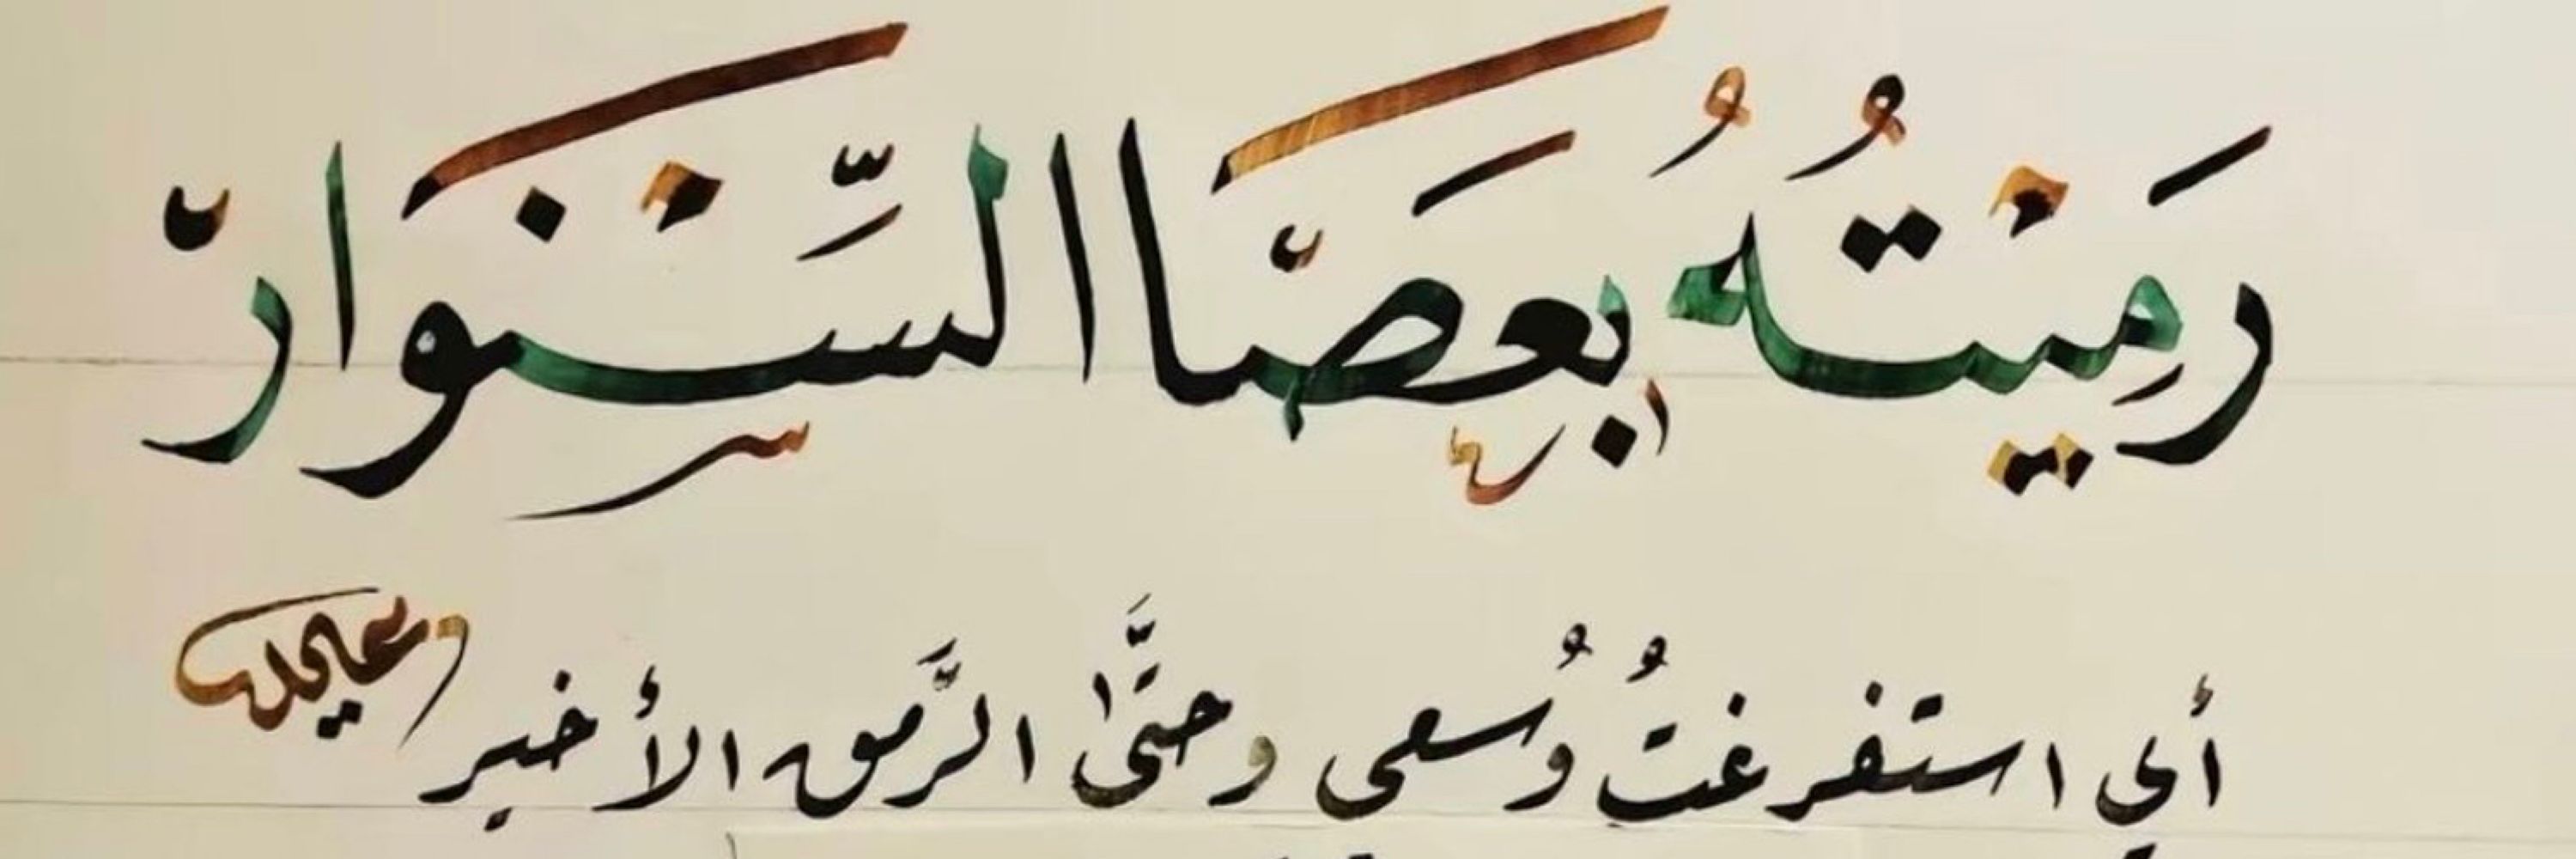 رَمَيْتُهُ بعَصَا السِّنْوَارْ
أي استفرغتُ وُسعي وحتَّى الرَّمق الأخير